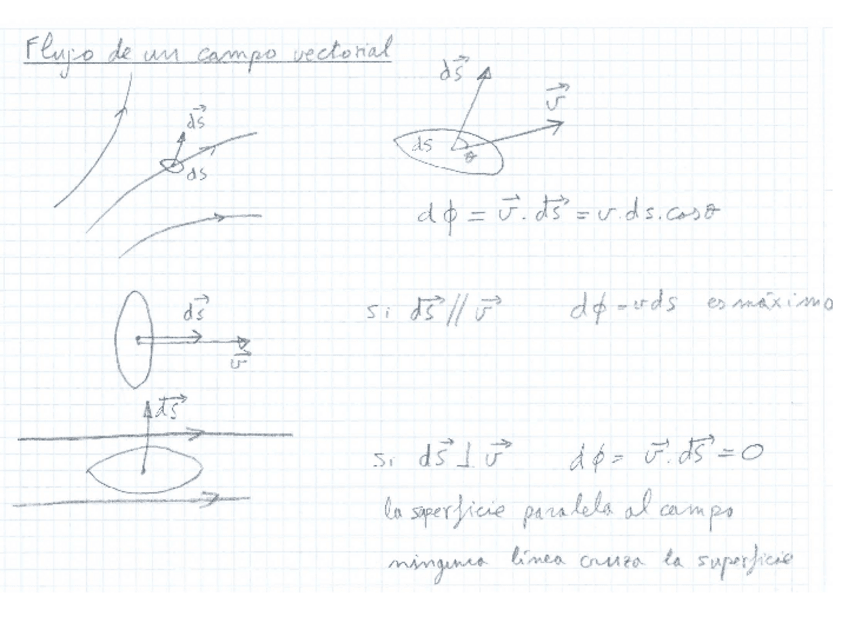 Flujo de un campo vectorial
ds⃗
ds
ds⃗
v⃗
ds
θ
dϕ = v⃗ . ds⃗ = v.ds.cosθ
ds⃗
v⃗
si ds⃗ // v⃗ dϕ = vds es máximo
ds⃗
si ds⃗ ⊥ v⃗ dϕ = v⃗ . ds⃗ = 0
la superficie paralela al campo
ninguna línea cruza la superficie